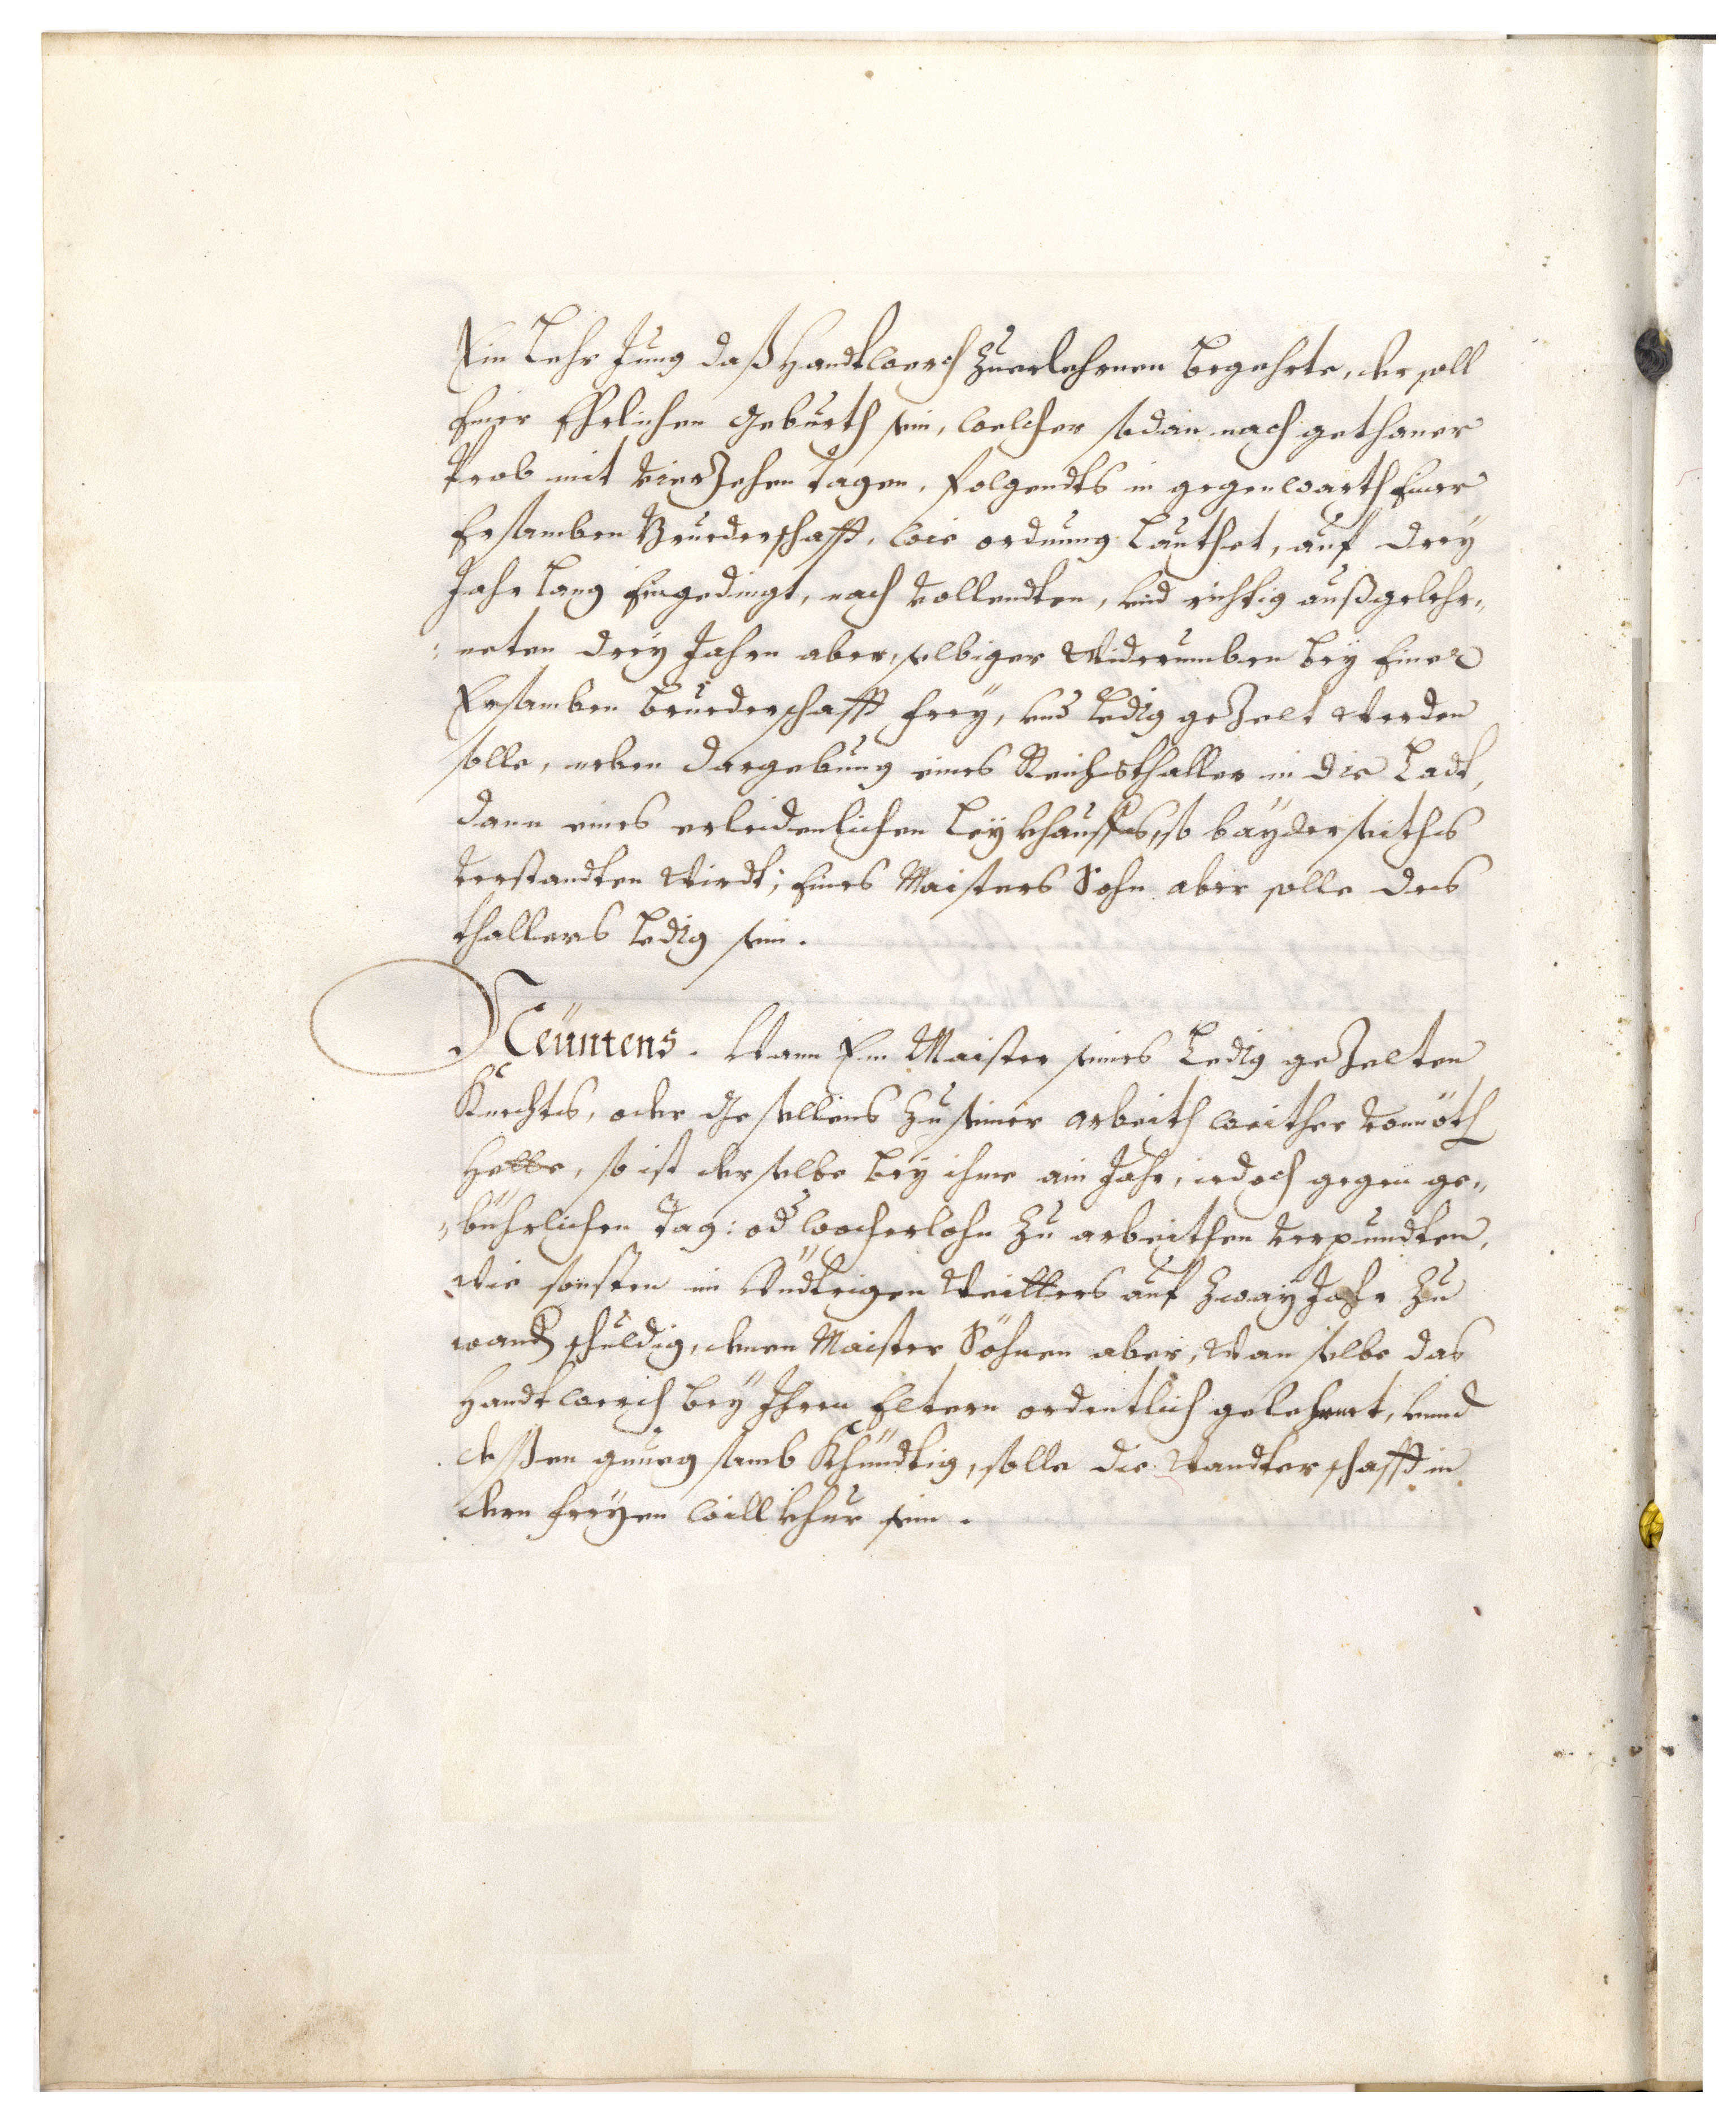 Ein Lehr Jung daß Handtwerch zuerlehrnen begehrte, der soll
Einer Ehrlichen geburth sein, welcher sodan nach gethaner
Prob mit vierzehen tagen, folgendts in gegenwarth Einer
Ersamben Bruederschafft, wie ordnung lauthet, auf drey
Jahr lang Eingedingt, nach vollendten, vnd richtig außgelehr„
„neten drey Jahrn aber, selbiger widerumben bey Einer
Ersamben bruederschafft frey, vnd ledig gezelt werden
solle, neben dargebung eines Reichsthaller in die Ladt,
dann eines erleidenlichen leykhauffs, so bayderseiths
verstandten wirdt; Eines Maisters Sohn aber solle des
thallers ledig sein.
Neüntens. Wann Ein Maister seines ledig gezelten
Knechts, oder Gesellens zu seiner arbeith weither vonnöth
hette, so ist derselbe bey ihme ain Jahr, iedoch gegen ge„
„bührlichen tag: od wocherlohn zu arbeithen verpundten,
wie sonsten im widrigen weitters auf zway Jahr zu
wand schuldig, denen Maister Söhnen aber, wan selbe das
Handtwerch bey Ihren Eltern ordentlich gelehrnt, vnnd
deßen genueg samb khündtig, solle die wandterschafft in
dern freyen willkhur sein.